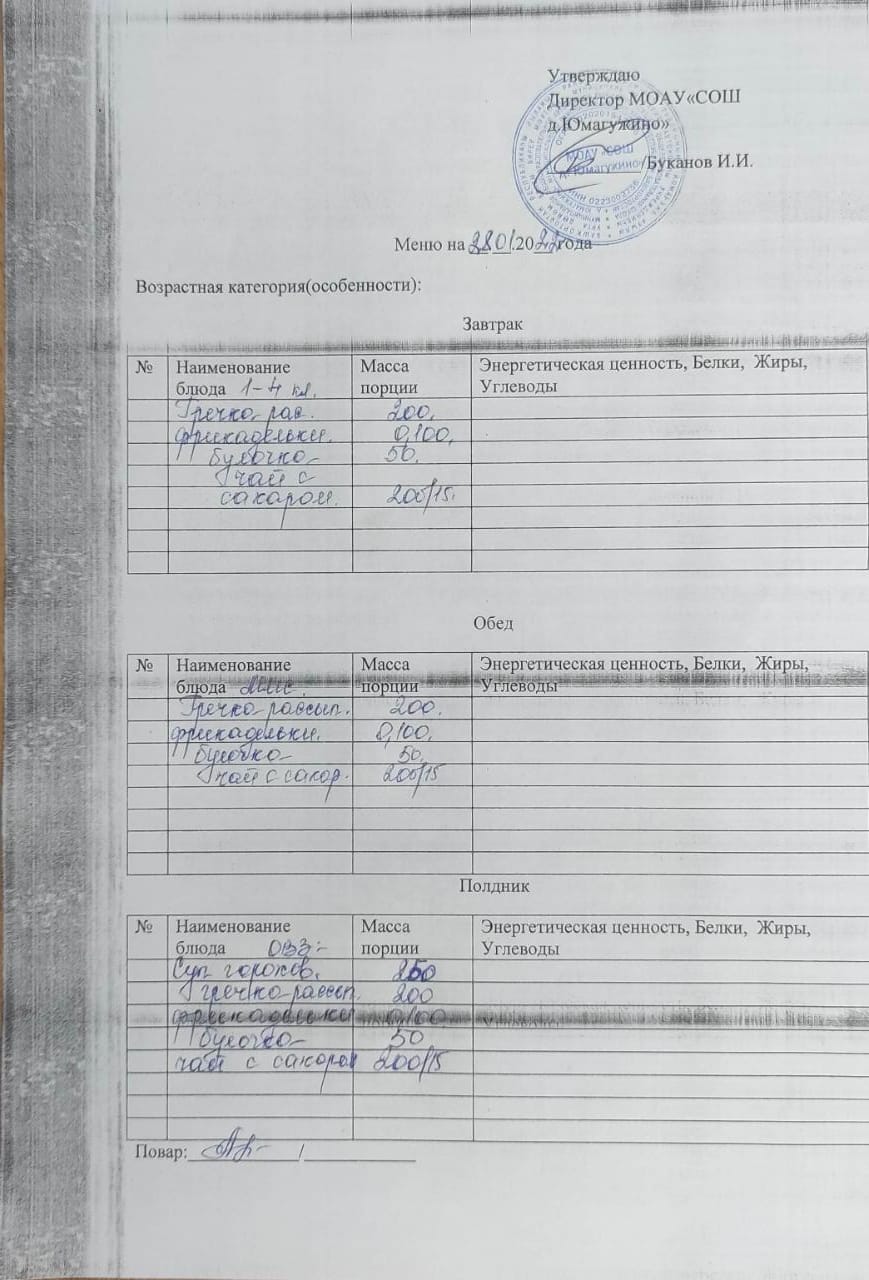 Утверждаю
Директор МОАУ«СОШ
д.Юмагужино»
/Буканов И.И.
МОАУ «СОШ
д. Юмагужино»
ИНН 0223003756
Меню на 28 01.2022года
Возрастная категория(особенности):
Завтрак
№ Наименование Масса Энергетическая ценность, Белки, Жиры,
блюда 1-4 кл. порции Углеводы
Гречка рас. 200.
фрикадельки. 0,100.
булочка 50.
чай с
сахаром. 200/15.
Обед
№ Наименование Масса Энергетическая ценность, Белки, Жиры,
блюда порции Углеводы
Гречка рассып. 200.
фрикадельки. 0,100.
булочка 50.
чай с сахар. 200/15
Полдник
№ Наименование Масса Энергетическая ценность, Белки, Жиры,
блюда ОВЗ:- порции Углеводы
Суп горохов. 250
гречка рассып. 200
фрикадельки 0,100
булочка 50
чай с сахаром 200/15
Повар: /